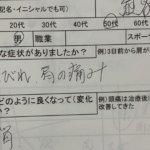 記名・イニシャルでも可)
20代 30代 40代 50代 60代
男 職業
な症状がありましたか? 例)3日前から肩が
びれ、肩の痛み
どのように良くなって(変化 例)頭痛は治療後
か? 改善してきた
肩